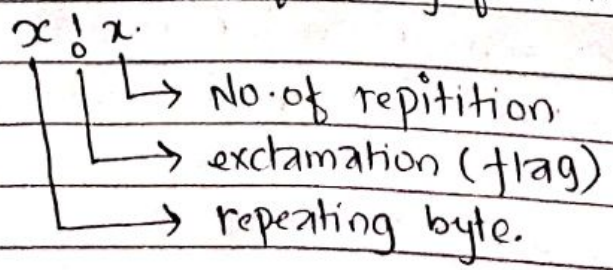 x ! x.
No. of repitition
exclamation (flag)
repeating byte.